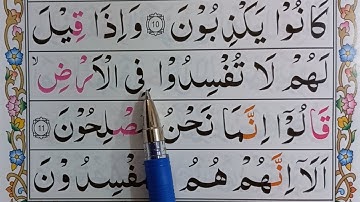 كَانُوْا يَكْذِبُوْنَ ﴿10﴾ وَاِذَا قِيْلَ
لَهُمْ لَا تُفْسِدُوْا فِى الْاَرْضِ ۙ
قَالُوْٓا اِنَّمَا نَحْنُ مُصْلِحُوْنَ ﴿11﴾
اَلَآ اِنَّهُمْ هُمُ الْمُفْسِدُوْنَ